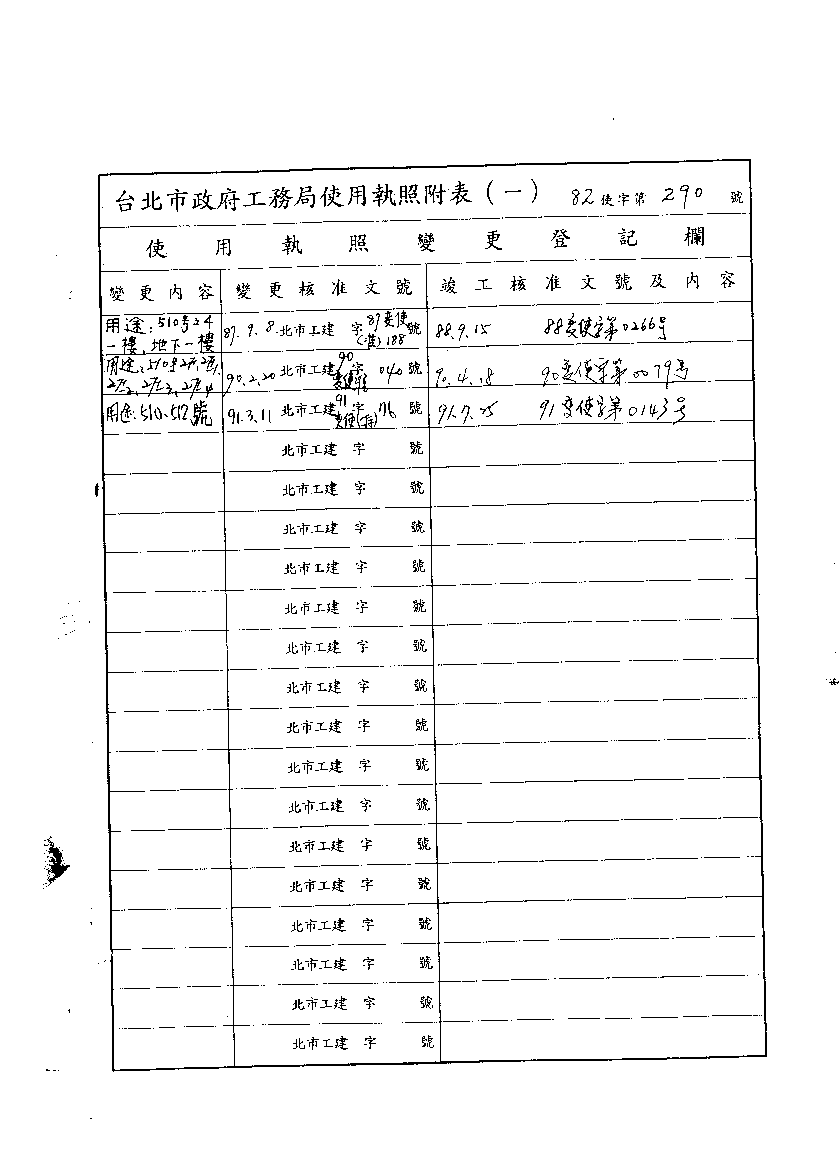 台北市政府工務局使用執照附表（一） 82使字第290號
使用執照變更登記欄
變更內容 變更核准文號 竣工核准文號及內容
用途：510号24
一樓，地下一樓 87.9.8.北市工建 字87變使(准)188號 88.9.15 88變使字第0266号
用途：510号
90.2.20 北市工建 字 040號 90.4.18 90變使字第0079号
用途：510、512號 91.3.11 北市工建 字 76號 91.7.25 91變使字第0143号
北市工建 字 號
北市工建 字 號
北市工建 字 號
北市工建 字 號
北市工建 字 號
北市工建 字 號
北市工建 字 號
北市工建 字 號
北市工建 字 號
北市工建 字 號
北市工建 字 號
北市工建 字 號
北市工建 字 號
北市工建 字 號
北市工建 字 號
北市工建 字 號